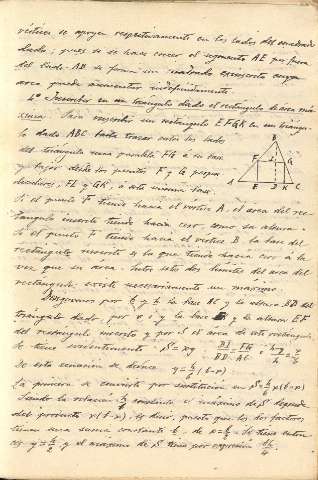 vértices se apoyen respectivamente en los lados del cuadrado
dado; pues si se hace crecer el segmento AE por fuera
del lado AB se forma un cuadrado circunscrito cuya
area puede aumentar indefinidamente.
4º Inscribir en un triangulo dado el rectangulo de area má-
xima. Para inscribir un rectangulo EFGK en un triangu-
lo dado ABC basta trazar entre los lados
del triangulo una paralela FG á su base
y bajar desde los puntos F y G perpen-
diculares, FE y GK, á esta misma base.
B
F I G
A E D K C
Si el punto F tiende hacia el vertice A, el area del rec-
tangulo inscrito tiende hacia cero como su altura.
Si el punto F tiende hacia el vertice B, la base del
rectangulo inscrito es la que tiende hacia cero á la
vez que su area. Entre estos dos limites del area del
rectangulo, existe necesariamente un maximo.
Designemos por b y h la base AC y la altura BD del
triangulo dado, por x é y la base y la altura EF
del rectangulo inscrito y por S el area de este rectangulo,
Se tiene evidentemente S=xy
De esta ecuacion se deduce y = h/b (b-x)
La primera se convierte por sustitucion en S = h/b x(b-x)
Siendo la relacion h/b constante el máximo de S depende
del producto x(b-x), es decir, puesto que los dos factores
tienen una suma constante b, de x = b/2. Se tiene enton-
ces y = h/2 y el maximo de S tiene por expresion bh/4.